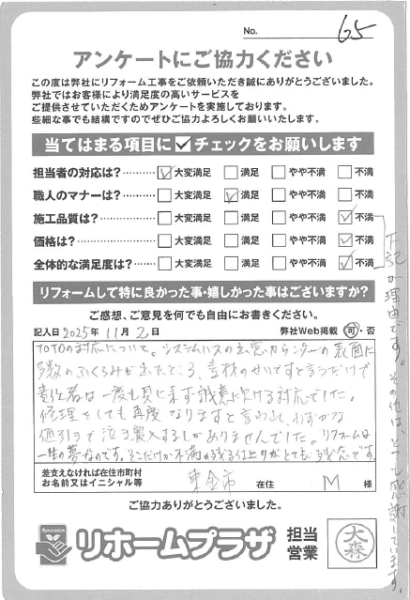 No. 65
アンケートにご協力ください
この度は弊社にリフォーム工事をご依頼いただき誠にありがとうございました。
弊社ではお客様により満足度の高いサービスを
ご提供させていただくためアンケートを実施しております。
些細な事でも結構ですのでぜひご協力よろしくお願いいたします。
当てはまる項目に✓チェックをお願いします
担当者の対応は?………… ☑大変満足 □満足 □やや不満 □不満
職人のマナーは?………… □大変満足 ☑満足 □やや不満 □不満
施工品質は?……………… □大変満足 □満足 □やや不満 ☑不満
価格は?…………………… □大変満足 □満足 □やや不満 ☑不満
全体的な満足度は?……… □大変満足 □満足 □やや不満 ☑不満
下記が理由です。その他は、とても感謝しています。
リフォームして特に良かった事・嬉しかった事はございますか?
ご感想、ご意見を何でも自由にお書きください。
記入日 2025年 11月 2日 弊社Web掲載 可・否
TOTOの対応について。システムバスの カウンターの表面に
多数のふくらみが あったところ、 のせいですと言うだけで
責任者は一度も見に来ず誠意に欠ける対応でした。
修理をしても再度なりますと言われ、わずかな
値引きで泣き寝入りするしかありませんでした。リフォームは
一生の夢なのです。そこだけが不満の残る仕上りがとても残念です
差支えなければ在住市町村
お名前又はイニシャル等 東金市 在住 M 様
ご協力ありがとうございました。
リホームプラザ 担当営業 大森